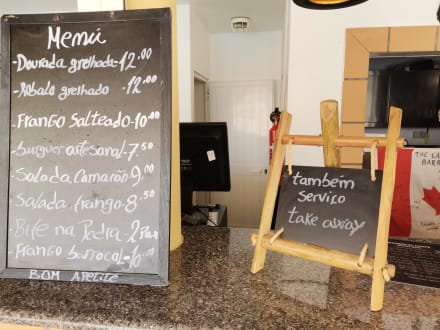 Menú
-Dourada grelhada-12.00
-Robalo grelhado - 12.00
-Frango Salteado-10.00
-burguer artesanal-7.50
-Salada Camarão 9.00
-Salada frango-8.50
-Bife na Pedra-2Pax
Frango barrocal-10.00
BOM APETITE
também
serviço
take away
THE CA
BARR